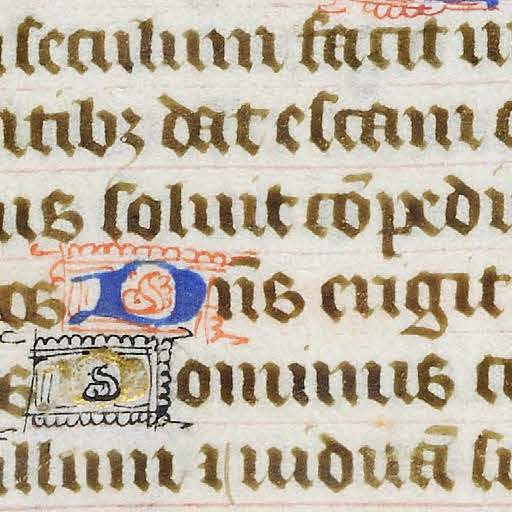 seculum facit iu
ntibꝫ dat escam e
us soluit cōpedi
os Dn̄s erigit
s Dominus cu
illum ⁊ uiduā su